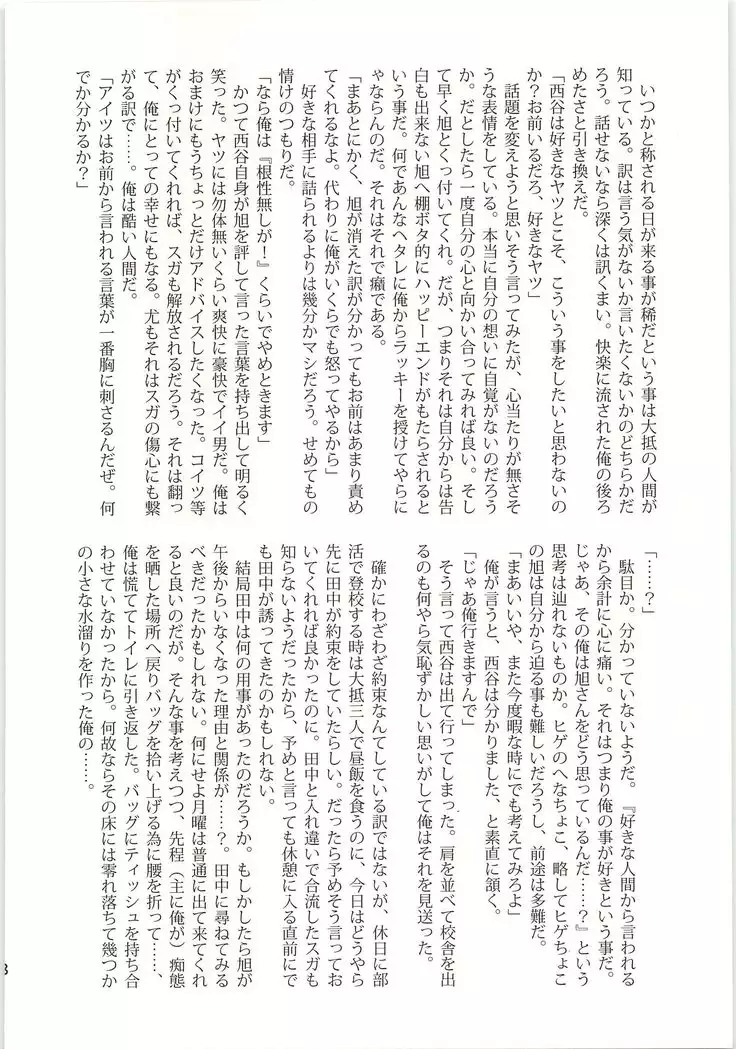 いつかと称される日が来る事が稀だという事は大抵の人間が
知っている。訳は言う気がないか言いたくないかのどちらかだ
ろう。話せないなら深くは訊くまい。快楽に流された俺の後ろ
めたさと引き換えだ。
「西谷は好きなヤツとこそ、こういう事をしたいと思わないの
か？お前いるだろ、好きなヤツ」
話題を変えようと思いそう言ってみたが、心当たりが無さそ
うな表情をしている。本当に自分の想いに自覚がないのだろう
か。だとしたら一度自分の心と向かい合ってみれば良い。そし
て早く旭とくっ付いてくれ。だが、つまりそれは自分からは告
白も出来ない旭へ棚ボタ的にハッピーエンドがもたらされると
いう事だ。何であんなヘタレに俺からラッキーを授けてやらに
ゃならんのだ。それはそれで癪である。
「まあとにかく、旭が消えた訳が分かってもお前はあまり責め
てくれるなよ。代わりに俺がいくらでも怒ってやるから」
好きな相手に詰られるよりは幾分かマシだろう。せめてもの
情けのつもりだ。
「なら俺は『根性無しが！』くらいでやめときます」
かつて西谷自身が旭を評して言った言葉を持ち出して明るく
笑った。ヤツには勿体無いくらい爽快で豪快でイイ男だ。俺は
おまけにもうちょっとだけアドバイスしたくなった。コイツ等
がくっ付いてくれれば、スガも解放されるだろう。それは翻っ
て、俺にとっての幸せにもなる。尤もそれはスガの傷心にも繋
がる訳で……。俺は酷い人間だ。
「アイツはお前から言われる言葉が一番胸に刺さるんだぜ。何
でか分かるか？」
「……？」
駄目か。分かっていないようだ。『好きな人間から言われる
から余計に心に痛い。それはつまり俺の事が好きという事だ。
じゃあ、その俺は旭さんをどう思っているんだ……？』という
思考は辿れないものか。ヒゲのへなちょこ、略してヒゲちょこ
の旭は自分から迫る事も難しいだろうし、前途は多難だ。
「まあいいや、また今度暇な時にでも考えてみろよ」
俺が言うと、西谷は分かりました、と素直に頷く。
「じゃあ俺行きますんで」
そう言って西谷は出て行ってしまった。肩を並べて校舎を出
るのも何やら気恥ずかしい思いがして俺はそれを見送った。
確かにわざわざ約束なんてしている訳ではないが、休日に部
活で登校する時は大抵三人で昼飯を食うのに、今日はどうやら
先に田中が約束をしていたらしい。だったら予めそう言ってお
いてくれれば良かったのに。田中と入れ違いで合流したスガも
知らないようだったから、予めと言っても休憩に入る直前にで
も田中が誘ってきたのかもしれない。
結局田中は何の用事があったのだろうか。もしかしたら旭が
午後からいなくなった理由と関係が……？。田中に尋ねてみる
べきだったかもしれない。何にせよ月曜は普通に出て来てくれ
ると良いのだが。そんな事を考えつつ、先程（主に俺が）痴態
を晒した場所へ戻りバッグを拾い上げる為に腰を折って……、
俺は慌ててトイレに引き返した。バッグにティッシュを持ち合
わせていなかったから。何故ならその床には零れ落ちて幾つか
の小さな水溜りを作った俺の……。